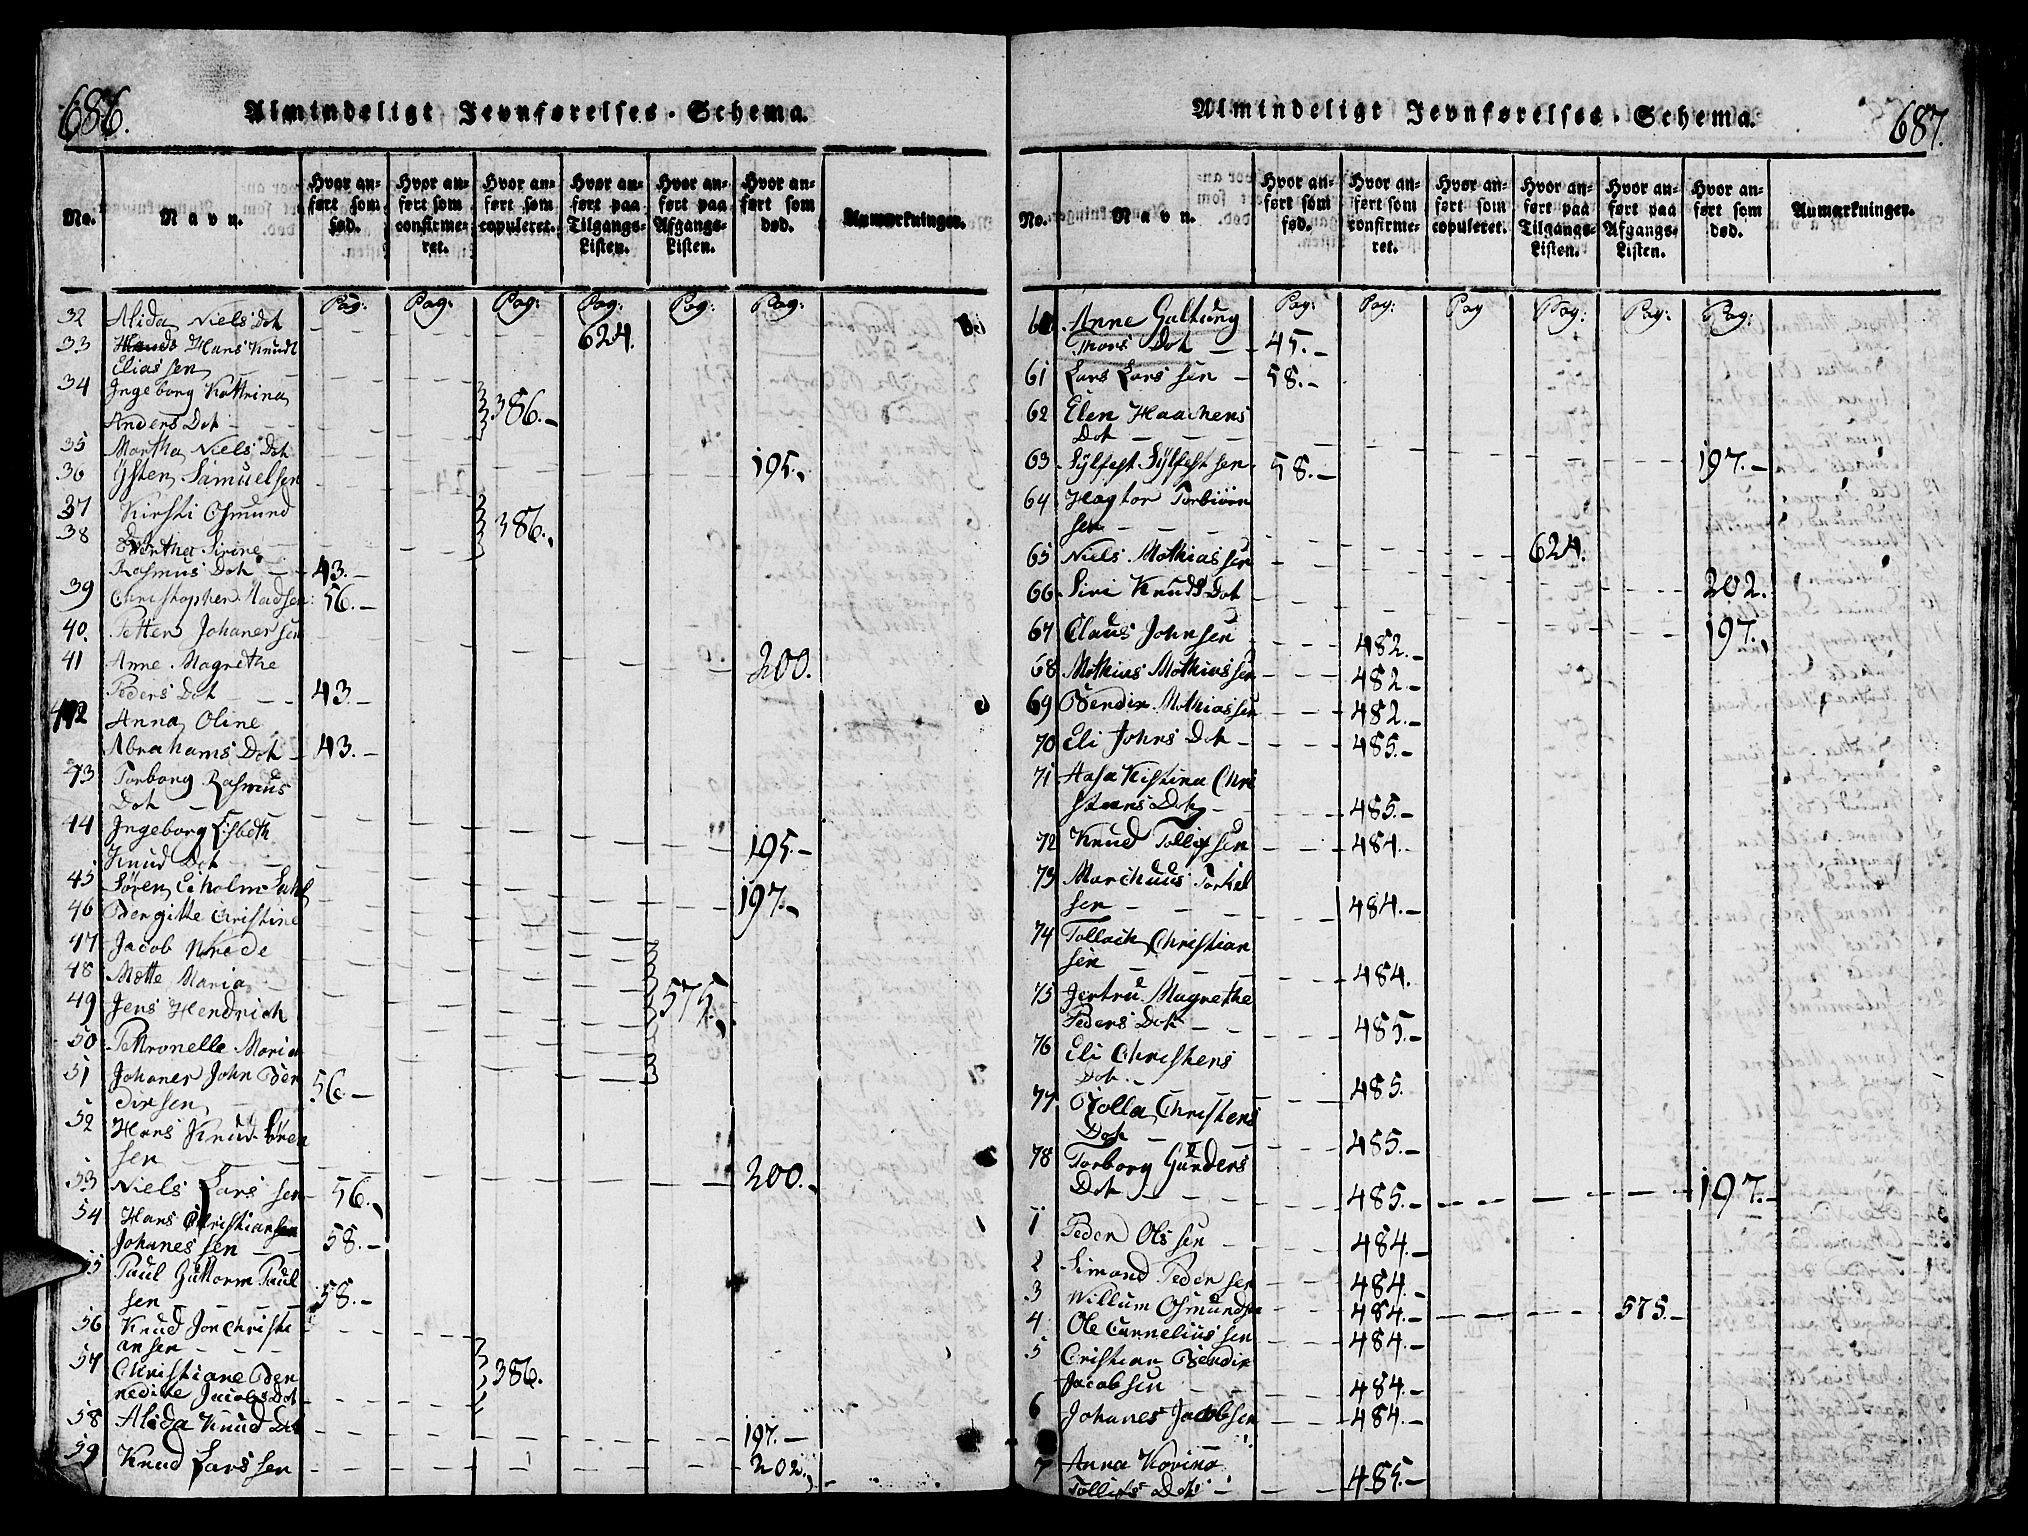 686.
Almindeligt Jevnførelses-Schema.
No.
Navn.
Hvor anført som fød.
Hvor anført som confirmeret.
Hvor anført som copuleret.
Hvor anført paa Tilgangs-Listen.
Hvor anført paa Afgangs-Listen.
Hvor anført som død.
Anmærkninger.
Pag: Pag: Pag: Pag: Pag: Pag:
32 Alida Niels Dot 624.
33 Hans Knud
Eliassen
34 Ingeborg Kattrina
Anders Dot 386.
35 Martha Niels Dot
36 Östen Samuelsen 195.
37 Kirsti Osmund
38 Berthe Sirine 386.
Rasmus Dot 43.
39 Christopher Madsen 56.
40. Petter Johanessen
41 Anne Magrethe 200.
Peders Dot 43.
42 Anna Oline
Abrahams Dot 43.
43 Torborg Rasmus
Dot
44 Ingeborg Lisbeth
Knud Dot 195.
45 Sören Eiholm 197.
46 Bergitte Christine
47 Jacob Wrede
48 Mette Maria
49 Jens Hendrich 575.
50 Pettronelle Maria
51 Johaner John Ben
dixsen 56.
52 Hans Knud Sören
sen
53 Niels Lars sen 56. 200.
54 Hans Christiansen
Johanessen 58.
55 Paul Guttorm Paul
sen 58.
56 Knud Jon Christi
ansen
57 Christiane Ber 386.
nedine Jacobs Dot
58 Alida Knud Dot 197.
59 Knud Larssen 202.
687.
Almindeligt Jevnførelses-Schema.
No.
Navn.
Hvor anført som fød.
Hvor anført som confirmeret.
Hvor anført som copuleret.
Hvor anført paa Tilgangs-Listen.
Hvor anført paa Afgangs-Listen.
Hvor anført som død.
Anmærkninger.
Pag: Pag: Pag Pag: Pag: Pag:
60. Anne Galtung
Thors Dot 45.
61 Lars Lars sen 58.
62 Elen Haachens
Dot
63 Sylfest Sylfestsen 58. 197.
64 Hagtor Torbiörn
sen
65 Niels Mathiassen 624.
66 Siri Knuds Dot 202.
67 Claus Johnsen 482. 197.
68 Mathias Mathiassen 482
69 Bendix Mathiassen 482.
70 Eli Johns Dot 485.
71 Aasa Kistina Chri
stians Dot 485.
72 Knud Tollissen 484.
73 Marchuus Torkel
sen 484.
74 Tollach Christian
sen 484.
75 Jertru Magrethe
Peders Dot 485.
76 Eli Christens
Dot 485.
77 Jolla Christens
Dot 485.
78 Torborg Gunders
Dot 485. 197.
1 Peder Olssen 484.
2 Simond Pedersen 484.
3 Willum Osmundsen 484. 575.
4 Ole Cornelius sen 484.
5 Cristian Bendix
Jacobsen 484.
6 Johanes Jacobsen 484.
7 Anna Karina
Tollifs Dot 485.